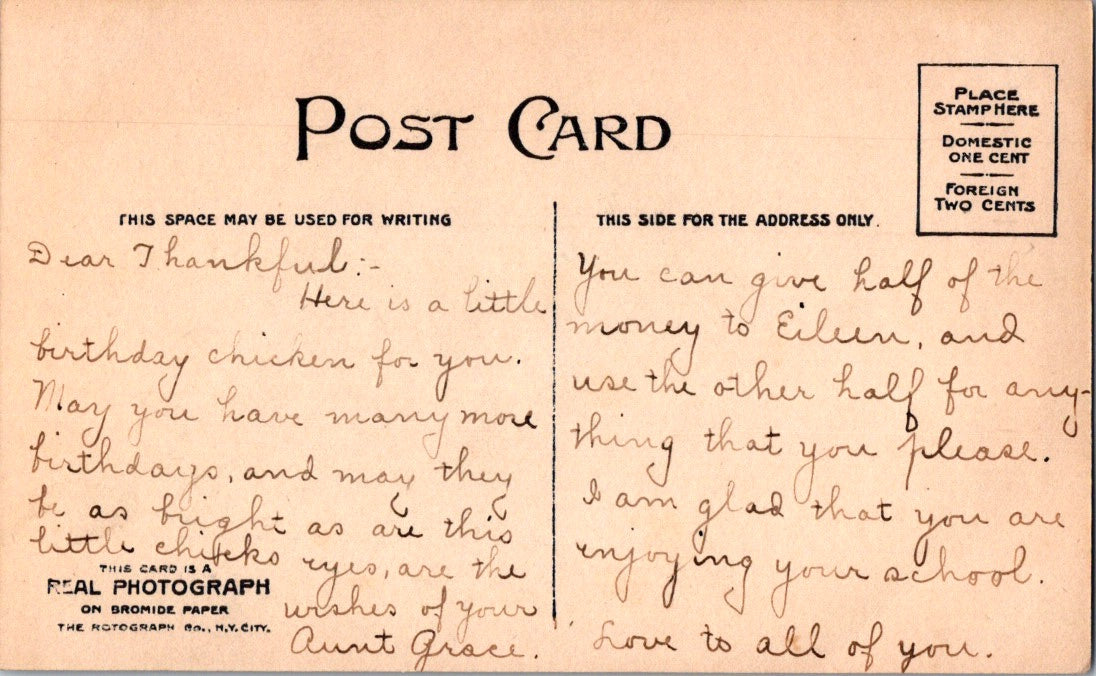 POST CARD
PLACE
STAMP HERE
DOMESTIC
ONE CENT
FOREIGN
TWO CENTS
THIS SPACE MAY BE USED FOR WRITING
Dear Thankful:-
Here is a little
birthday chicken for you.
May you have many more
birthdays, and may they
be as bright as are this
little chicks eyes, are the
wishes of your
Aunt Grace.
THIS CARD IS A
REAL PHOTOGRAPH
ON BROMIDE PAPER
THE ROTOGRAPH Co., N.Y. CITY.
THIS SIDE FOR THE ADDRESS ONLY.
You can give half of the
money to Eileen, and
use the other half for any-
thing that you please.
I am glad that you are
enjoying your school.
Love to all of you.